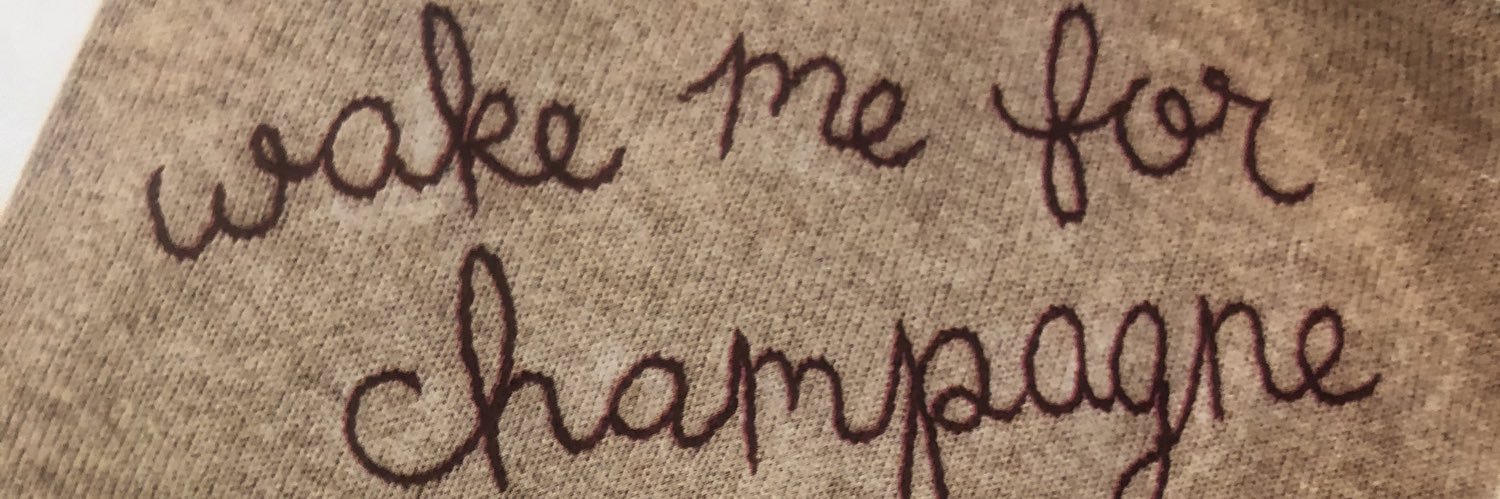 wake me for
champagne